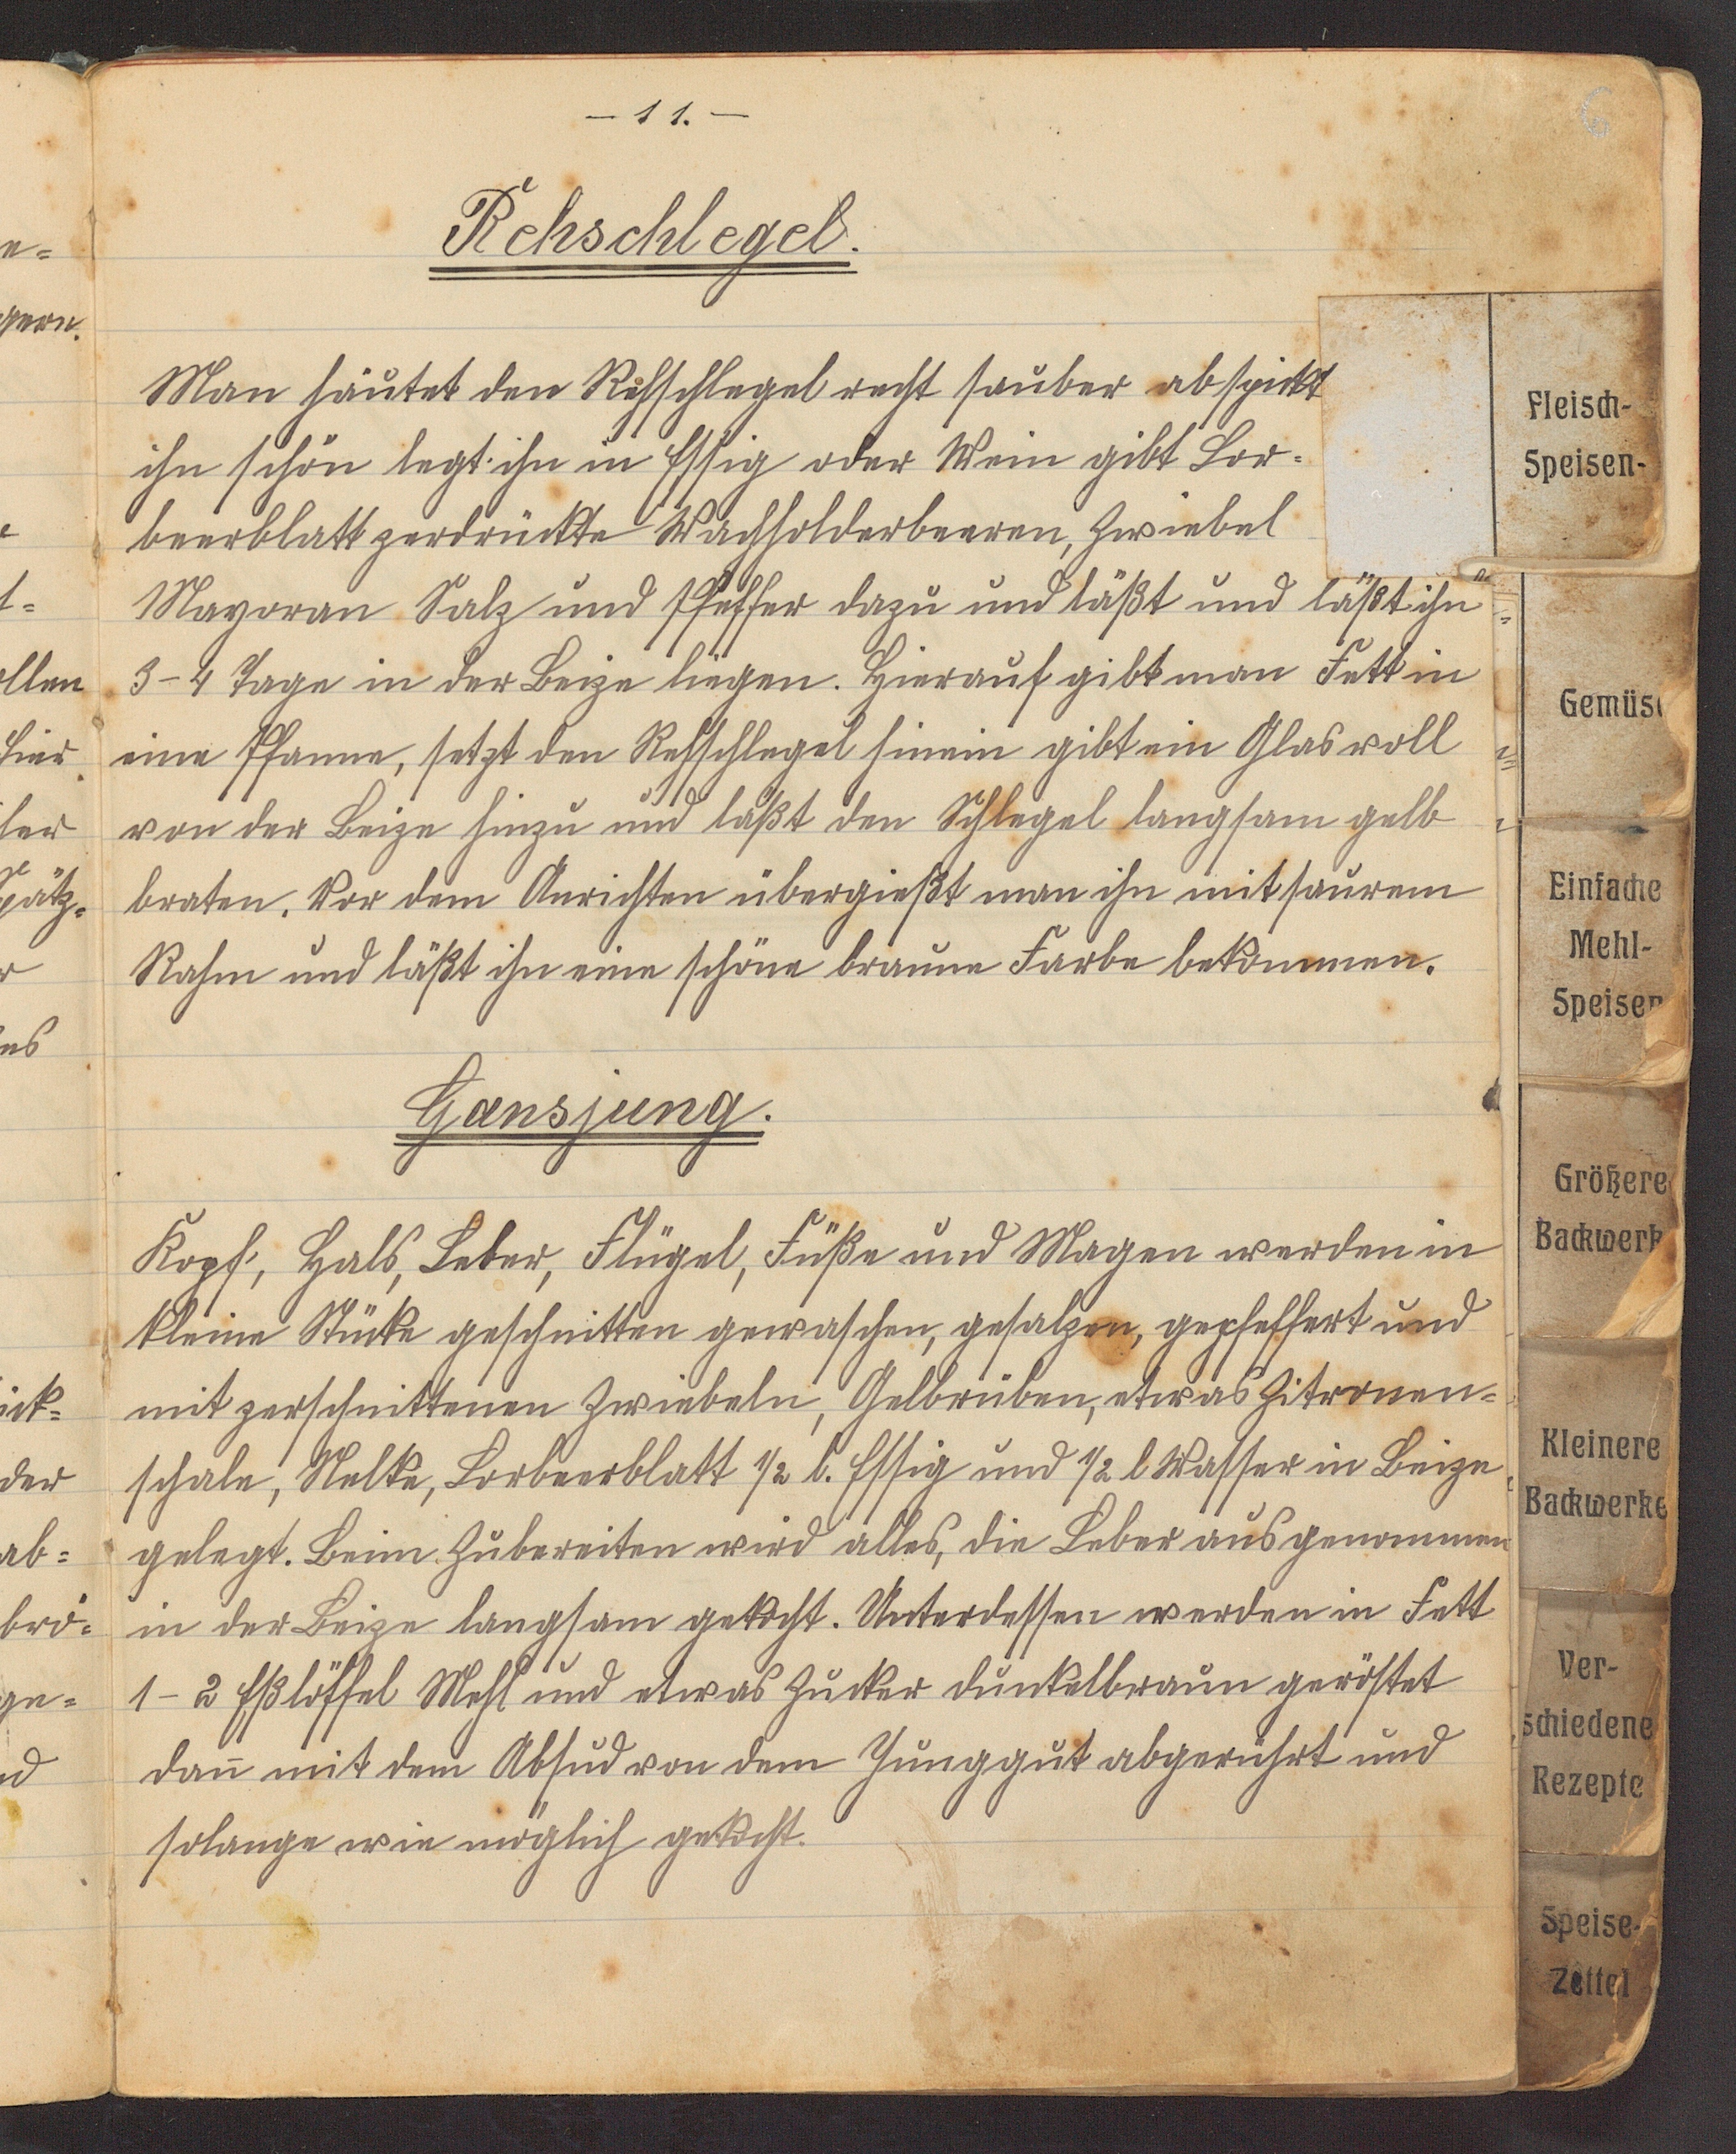 - 11. -
6
Rehschlegel.
Man häutet den Rehschlegel recht sauber ab spickt
ihn schön legt ihn in Essig oder Wein gibt Lor-
beerblatt zerdrückte Wachholderbeeren, Zwiebel
Mayoran Salz und Pfeffer dazu und läßt und läßt ihn
3-4 Tage in der Beize liegen. Hierauf gibt man Fett in
eine Pfanne, setzt den Rehschlegel hinein gibt ein Glas voll
von der Beize hinzu und läßt den Schlegel langsam gelb
braten. Vor dem Anrichten übergießt man ihn mit saurem
Rahm und läßt ihn eine schöne braune Farbe bekommen.
Gansjung.
Kopf, Hals, Leber, Flügel, Füße und Magen werden in
kleine Stücke geschnitten gewaschen, gesalzen, gepfeffert und
mit zerschnittenen Zwiebeln, Gelbrüben, etwas Zitronen-
schale, Nelke, Lorbeerblatt 1/2 l. Essig und 1/2 l Wasser in Beize
gelegt. Beim Zubereiten wird alles, die Leber ausgenommen
in der Beize langsam gekocht. Unterdessen werden in Fett
1-2 Eßlöffel Mehl und etwas Zucker dunkelbraun geröstet
dann mit dem Absud von dem Junggut abgerührt und
solange wie möglich gekocht.
Fleisch-
Speisen-
Gemüse
Einfache
Mehl-
Speisen
Größere
Backwerk
Kleinere
Backwerke
Ver-
schiedene
Rezepte
Speise-
Zettel